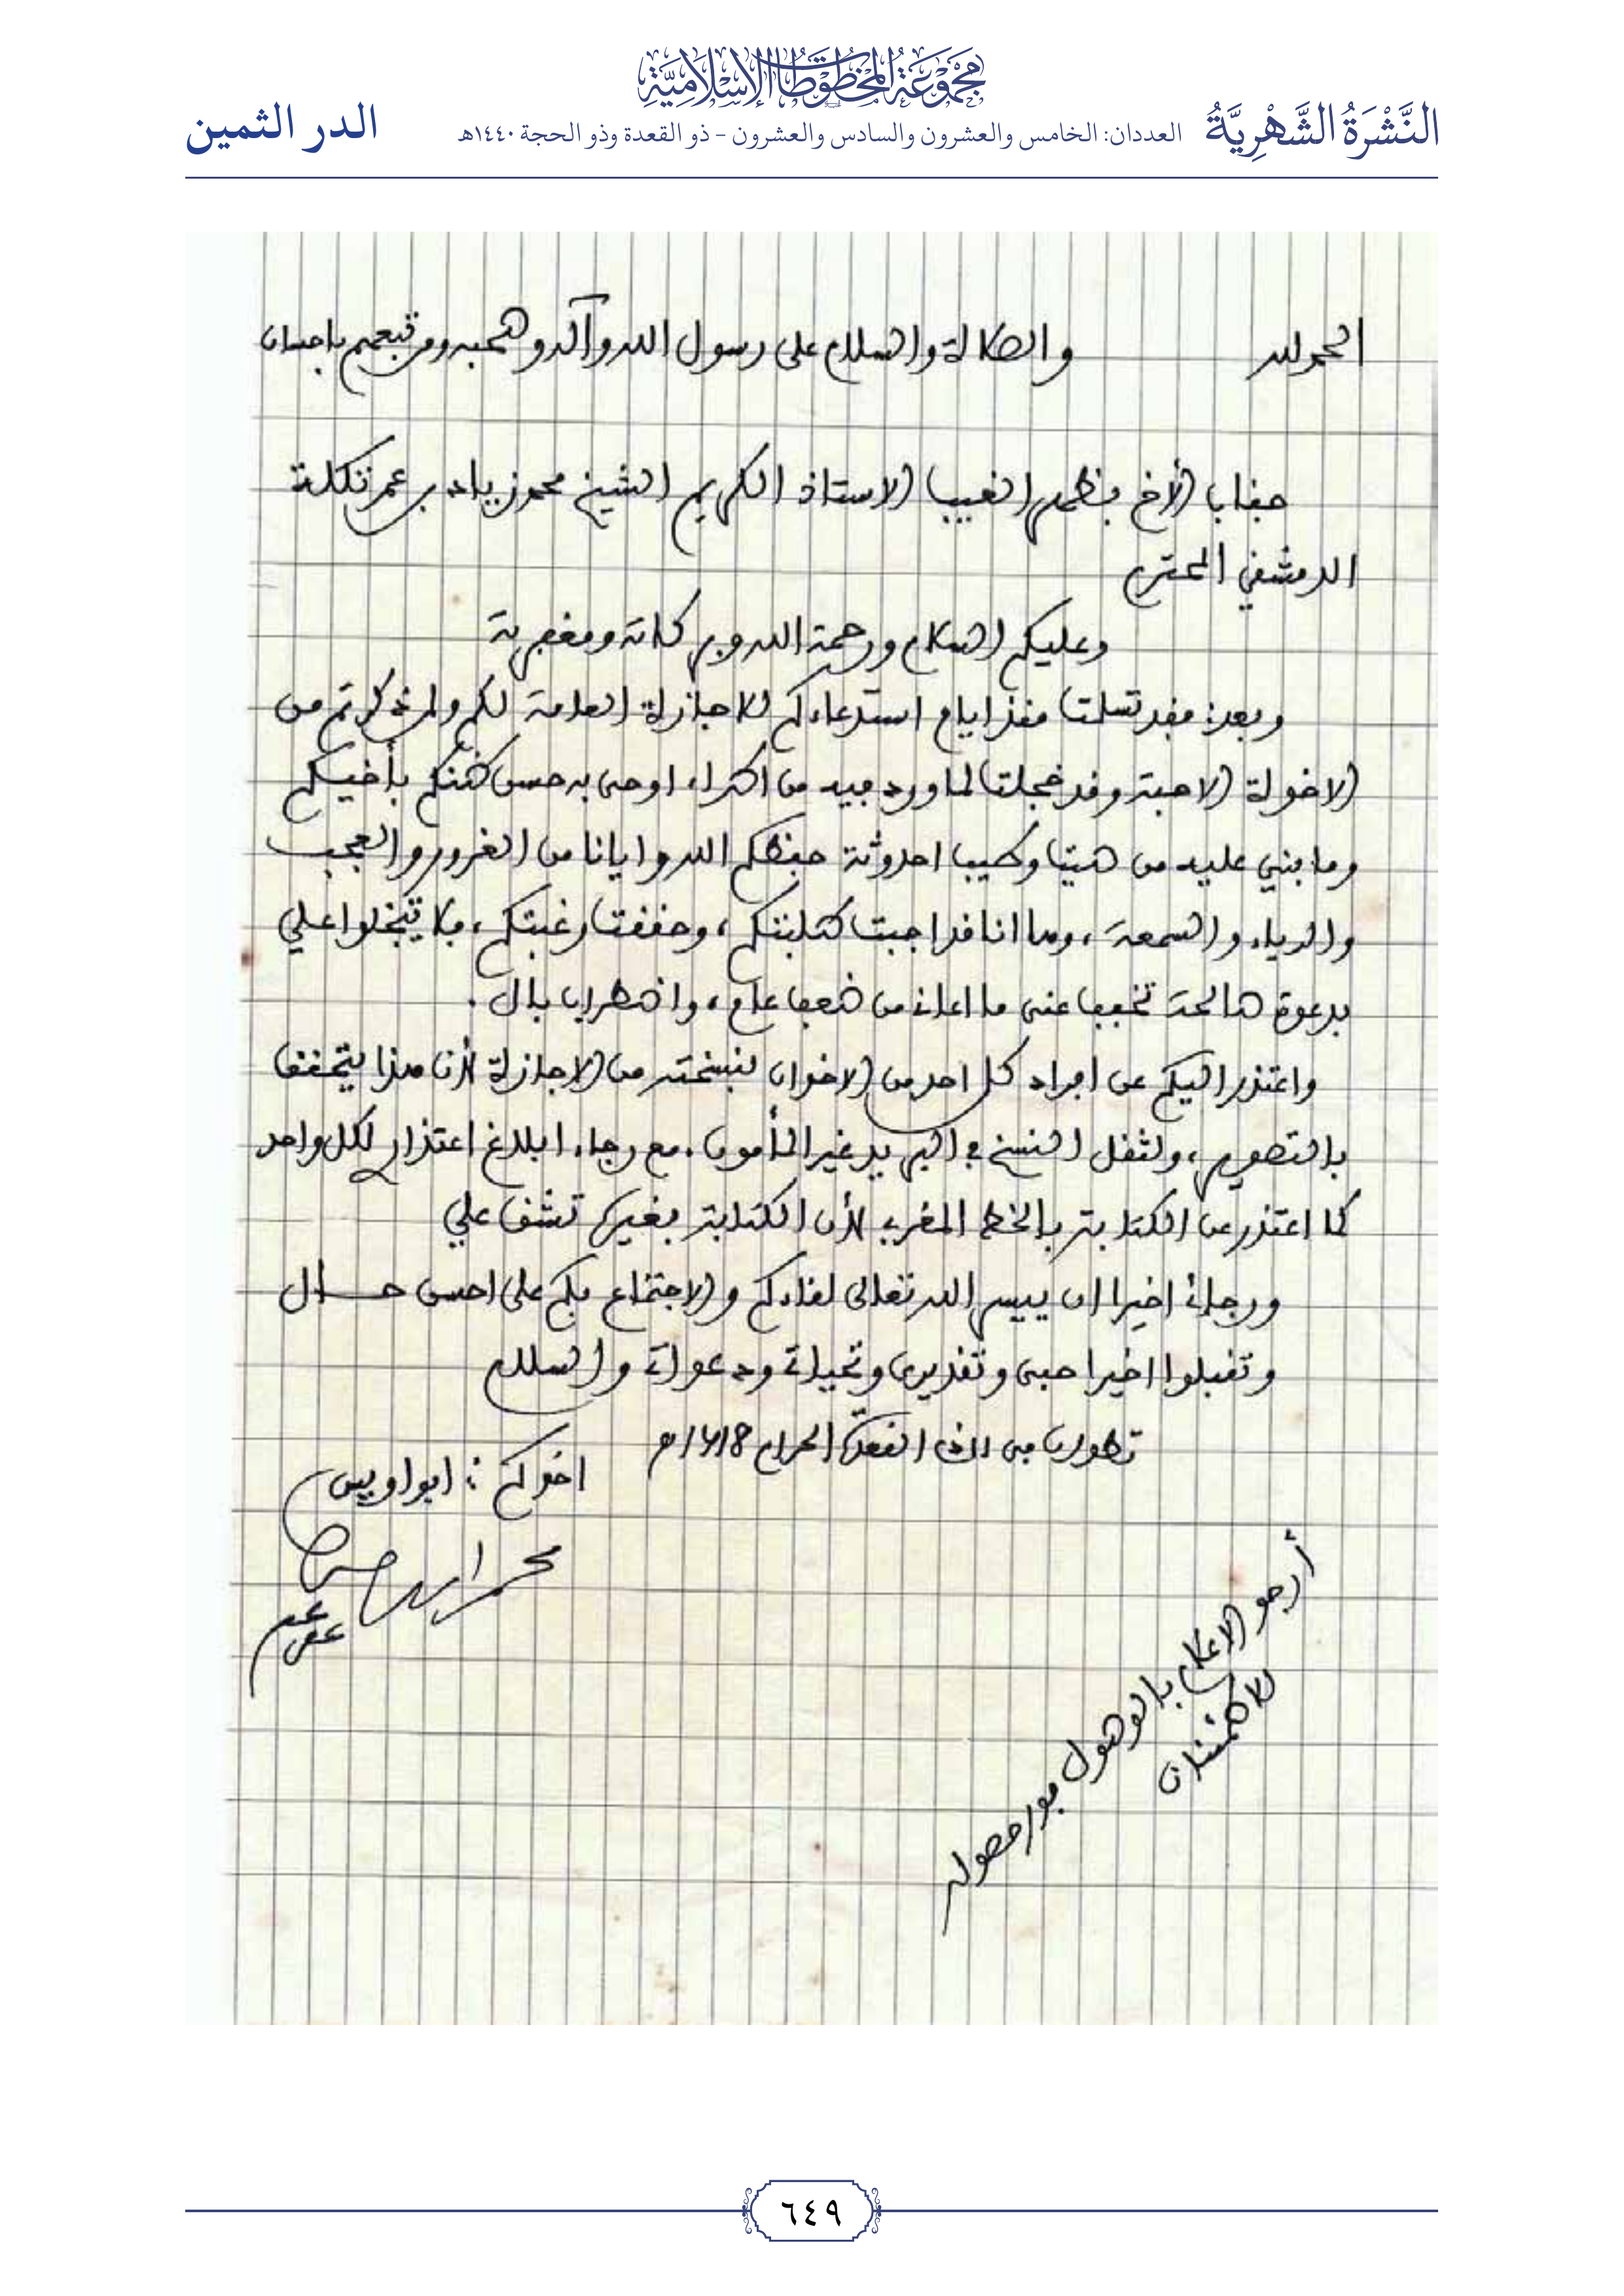 مجموعة المخطوطات الإسلامية
النَّشْرَةُ الشَّهْرِيَّةُ العددان: الخامس والعشرون والسادس والعشرون - ذو القعدة وذو الحجة ١٤٤٠هـ الدر الثمين
الحمد لله والصلاة والسلام على رسول الله وآله وصحبه ومن تبعهم بإحسان
جناب الأخ بظهر الغيب الاستاذ الكريم الشيخ محمد زياد بن عمر تكلة
الدمشقي المحترم
وعليكم السلام ورحمة الله وبركاته ومغفرته
وبعد: فقد تسلمت منذ ايام استدعاءكم للاجازة العامة لكم ولمن ذكرتم من
الاخوة الاحبة وقد خجلت لما ورد فيه من اطراء اوحى به حسن ظنكم بأخيكم
وما بني عليه من صيت وطيب احدوثة حفظكم الله وايانا من الغرور والعجب
والرياء والسمعة، وها انا قد اجبت طلبتكم، وحققت رغبتكم، فلا تبخلوا علي
بدعوة صالحة تخفف عني ما اعاني من ضعف عام، واضطراب بال.
واعتذر اليكم عن افراد كل احد من الاخوان بنسخة من الاجازة لأن هذا يتحقق
بالتصوير، ولثقل النسخ في البريد غير المأمون. مع رجاء ابلاغ اعتذاري لكل واحد
كما اعتذر عن الكتابة بالخط المغربي لأن الكتابة بغيره تشق علي
ورجائي اخيرا ان ييسر الله تعالى لقاءكم والاجتماع بكم على احسن حـــال
وتقبلوا اخيرا حبي وتقديري وتحياتي ودعواتي والسلام
تطوان في ١١ ذي القعدة الحرام ١٤١٨هـ
اخوكم: ابو اويس
محمد
عفي عنه
أرجو الاعلام بالوصول فور حصوله
للاطمئنان
٦٤٩